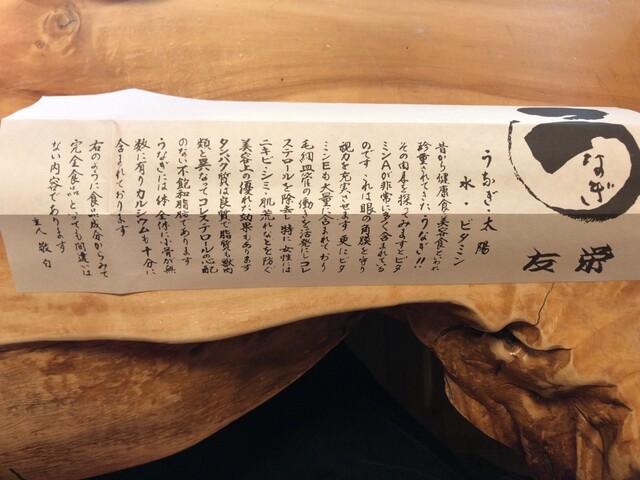 うなぎ
友栄
うなぎ・太陽
水・ビタミン
昔から健康食、美容食といわれ
珍重されてきたうなぎ!!
その内容を探ってみますとビタ
ミンAが非常に多く含まれている
のです これは眼の角膜を守り
視力を充実させます 更にビタ
ミンEも大量に含まれており
毛細血管の働きを活発にしコレ
ステロールを除去し 特に女性には
ニキビ・シミ・肌荒れなどを防ぐ
美容上の優れた効果もあります
タンパク質は良質で脂質も獣肉
類と異なってコレステロールの心配
のない不飽和脂肪であります
うなぎには体全体に小骨が無
数に有りカルシウムも十分に
含まれております
右のように食品成分からみて
完全食品といっても間違いは
ない内容であります
主人 敬白